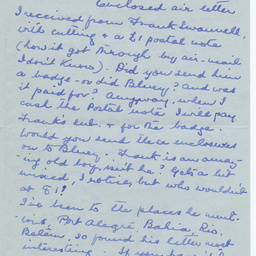 Enclosed air letter
I received from Frank Swannell,
with cutting & a £1 postal note
(how it got through by air-mail
I don't know). Did you send him
a badge - or did Bluey? and was
it paid for? Anyway, when I
cash the Postal note I will pay
Frank's sub. & for the badge.
Would you send these enclosures
on to Bluey. Frank is an amaz-
ing old boy, isn't he? Gets a bit
mixed, I notice, but who wouldn't
at 81!
I've been to the places he ment-
ions, Port Alegre, Bahia, Rio,
Belem, so found his letter most
interesting.